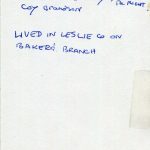 COY GRANDSON
LIVED IN LESLIE CO ON
BAKERS BRANCH